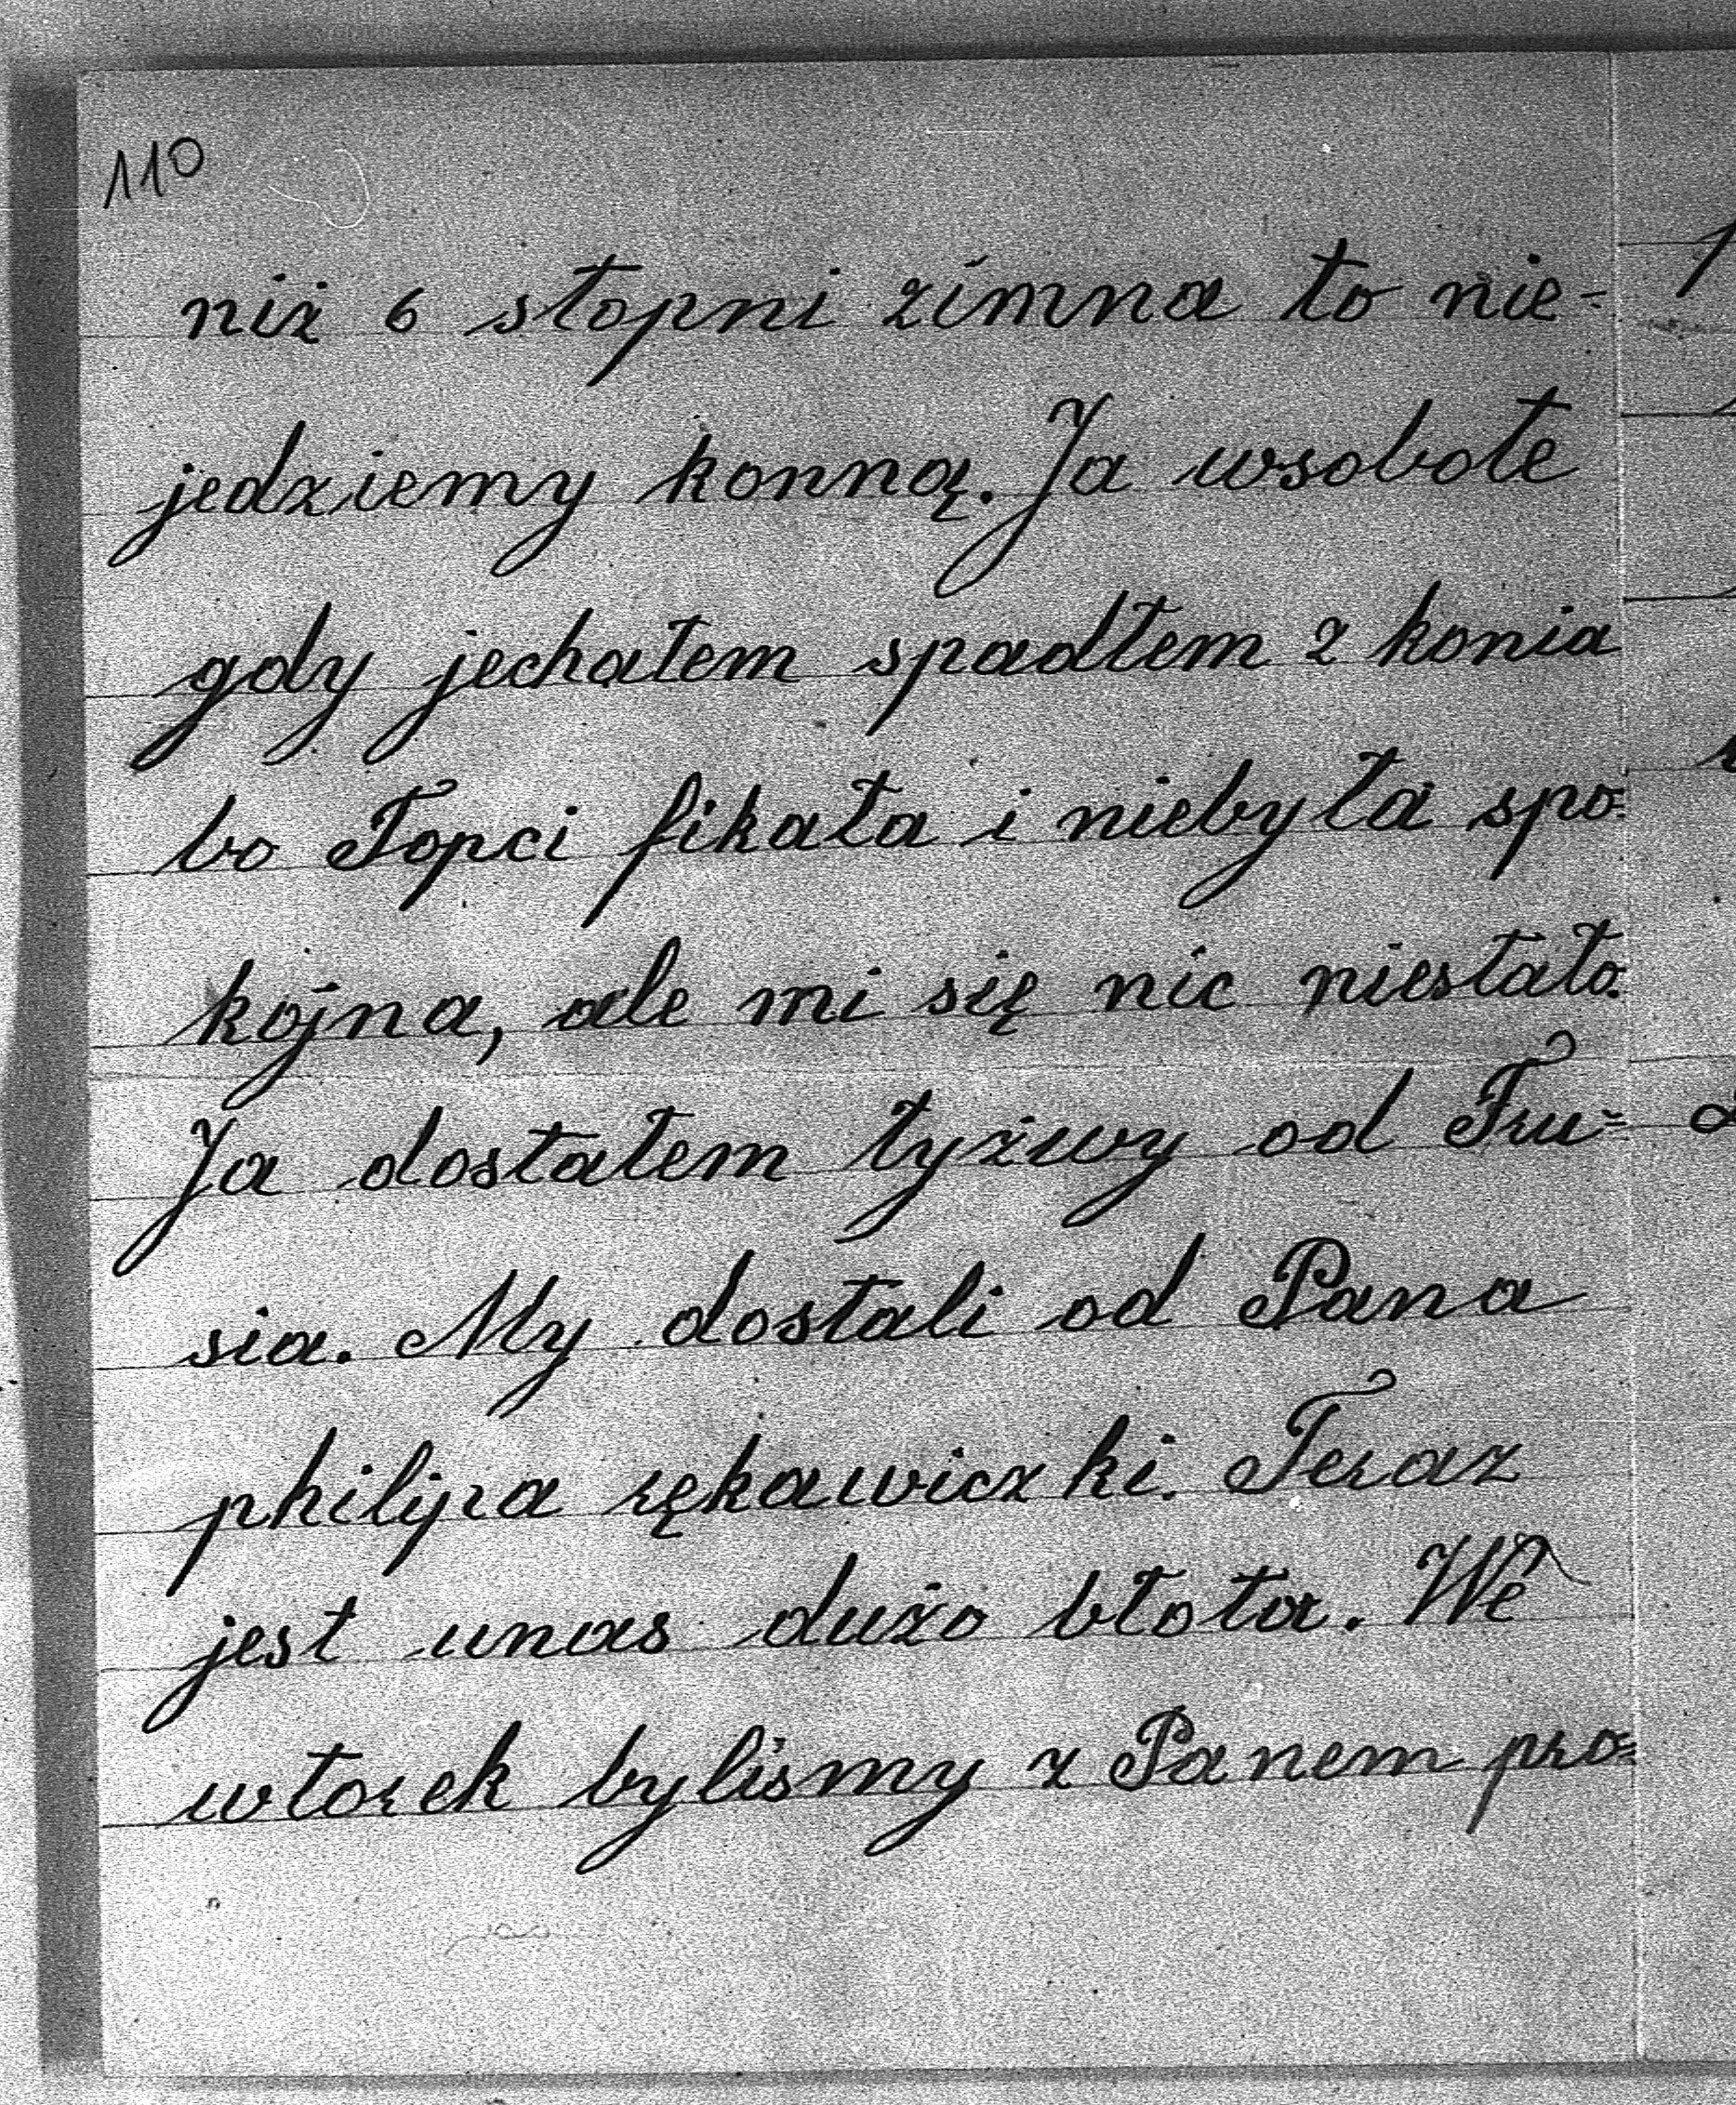 110
niż 6 stopni zimna to nie-
jedziemy konną. Ja wsobote
gdy jechałem spadłem z konia
bo Topci fikała i niebyła spo-
kojna, ale mi się nic niestało.
Ja dostałem łyżwy od Tru-
sia. My dostali od Pana
philipa rękawiczki. Teraz
jest unas dużo błota. We
wtorek byliśmy z Panem pro-